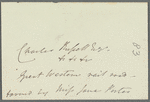 Charles Russell Esq
&c &c &c
Great Western rail road
found by Miss Jane Porter
83